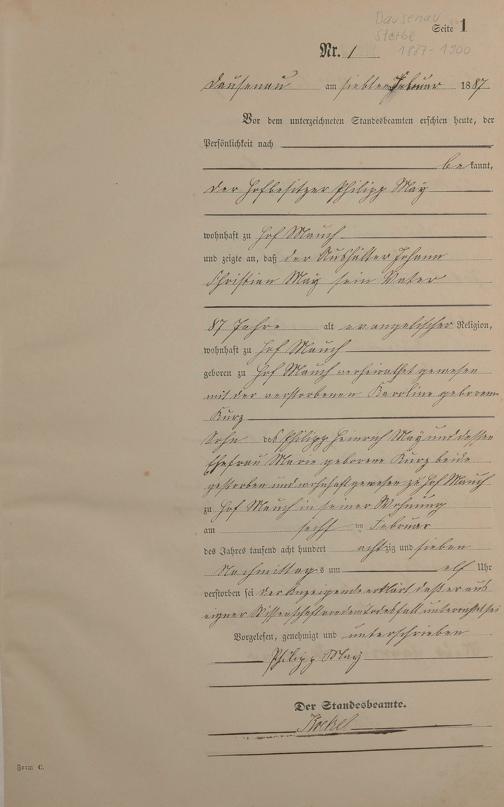 Dausenau
Sterbe
1887-1900
Seite 1
Nr. 1
Dausenau am siebten Februar 1887
Vor dem unterzeichneten Standesbeamten erschien heute, der
Persönlichkeit nach
bekannt,
der Hofbesitzer Philipp May
wohnhaft zu Hof Mauch
und zeigte an, daß der Aushälter Johann
Christian May sein Vater
87 Jahre alt evangelischer Religion,
wohnhaft zu Hof Mauch
geboren zu Hof Mauch verheirathet gewesen
mit der verstorbenen Karoline geborenen
Kurz
Sohn des Philipp Heinrich May und dessen
Ehefrau Marie geborene Kurz beide
gestorben und wohnhaft gewesen zu Hof Mauch
zu Hof Mauch in seiner Wohnung
am sechs ten Februar
des Jahres tausend acht hundert achtzig und sieben
Nachmittags um elf Uhr
verstorben sei der Anzeigende erklärt daß er aus
eigner Wissenschaft von dem Todesfall unterrichtet sei
Vorgelesen, genehmigt und unterschrieben
Philipp May
Der Standesbeamte.
Form C.